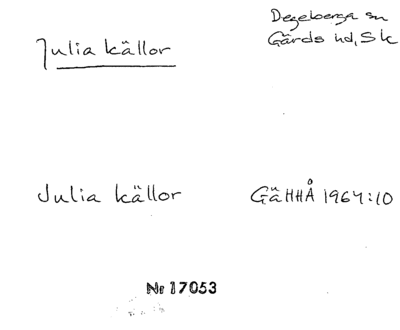 Julia källor
Degeberga sn
Gärds hd, Sk
Julia källor
GäHHÅ 1964:10
Nr 17053